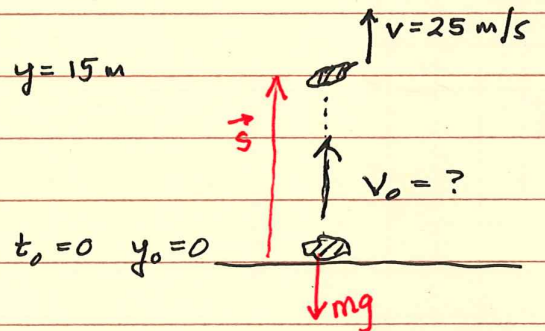 v = 25 m/s
y = 15 m
s
v₀ = ?
t₀ = 0 y₀ = 0
mg